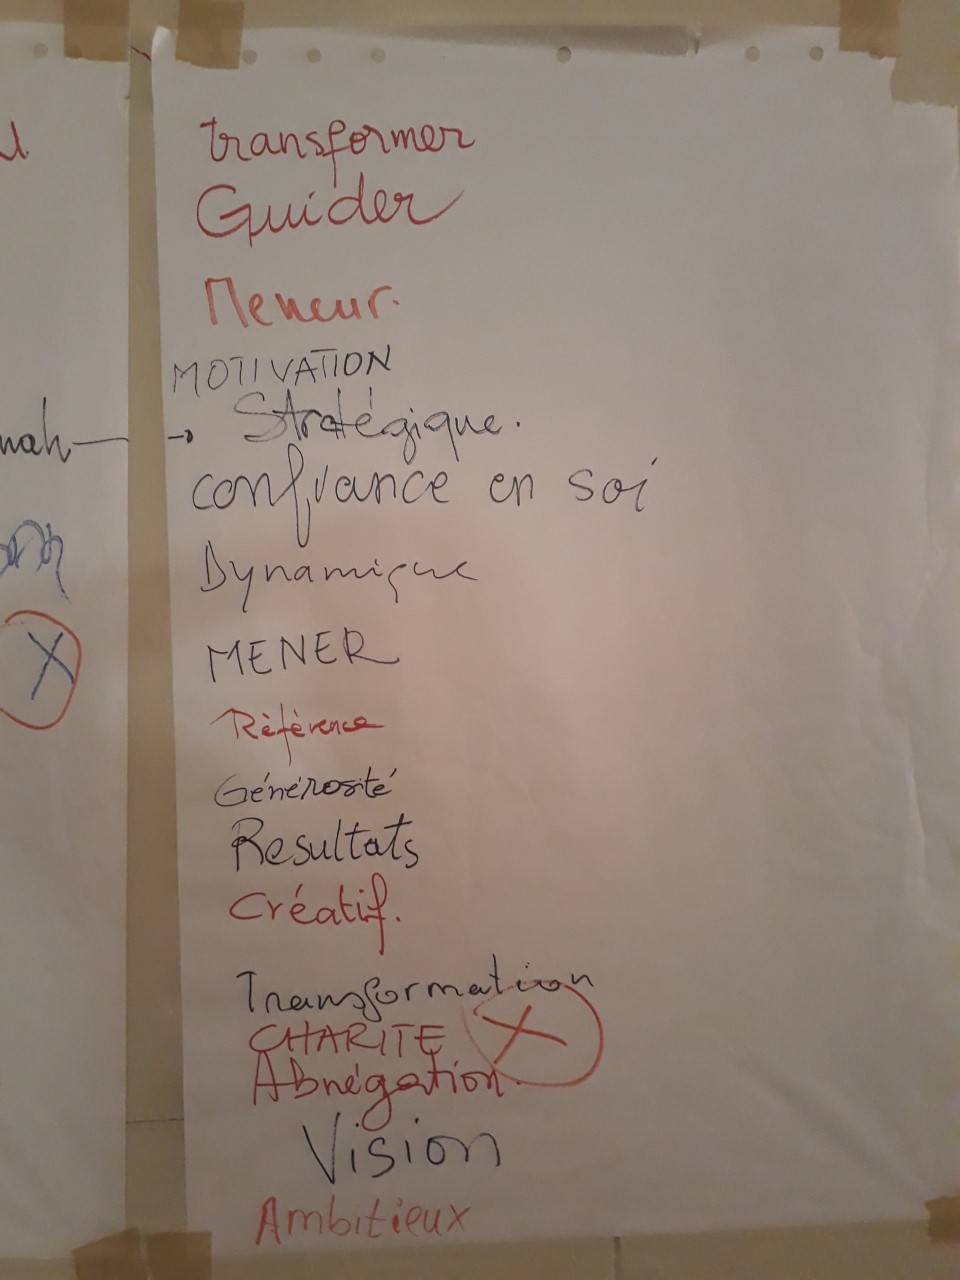 transformer
Guider
Meneur.
MOTIVATION
nah → Stratégique.
confiance en soi
Dynamique
MENER
Référence
Générosité
Resultats
Créatif.
Transformation
CHARITE X
Abnégation.
Vision
Ambitieux
X